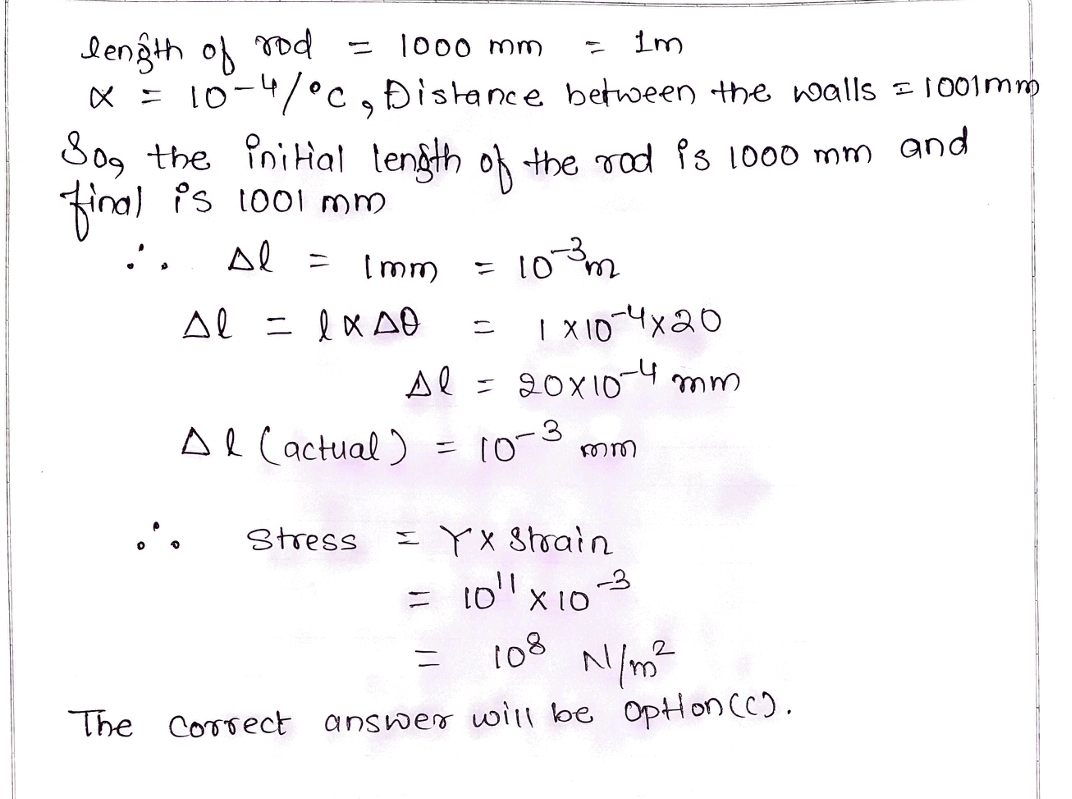 length of rod = 1000 mm = 1m
α = 10-4/°C, Distance between the walls = 1001mm
So, the initial length of the rod is 1000 mm and
final is 1001 mm
∴ Δl = 1mm = 10⁻³m
Δl = lαΔθ = 1×10⁻⁴×20
Δl = 20×10⁻⁴ mm
Δl (actual) = 10⁻³ mm
∴ Stress = Y× Strain
= 10¹¹ × 10⁻³
= 10⁸ N/m²
The correct answer will be option(c).